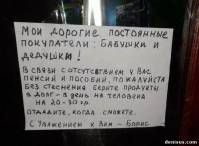 Мои дорогие постоянные
покупатели: Бабушки и
дедушки!
В связи с отсутствием у вас
пенсий и пособий, пожалуйста
без стеснения берите продукты
в долг - в день на человека
на 20-30 гр.
Отдадите, когда сможете.
С уважением к Вам - Борис
demisun.com